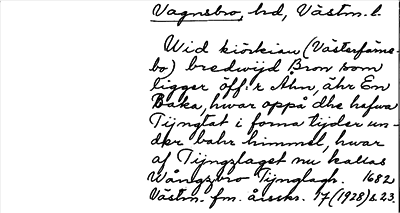 Vagnsbro, hd, Västm. l.
Wid kiörkian (Västerfärne-
bo) bredwijd Bron som
ligger öff.r Åhn, ähr En
Backa, hwar oppå dhe hafwa
Tijngtat i forna tijder un-
der bahr himmel, hwar
af Tijngzlaget nu kallas
Wångzbro Tijnglagh. 1682
Västm. fm. årsskr. 17 (1928) s. 23.